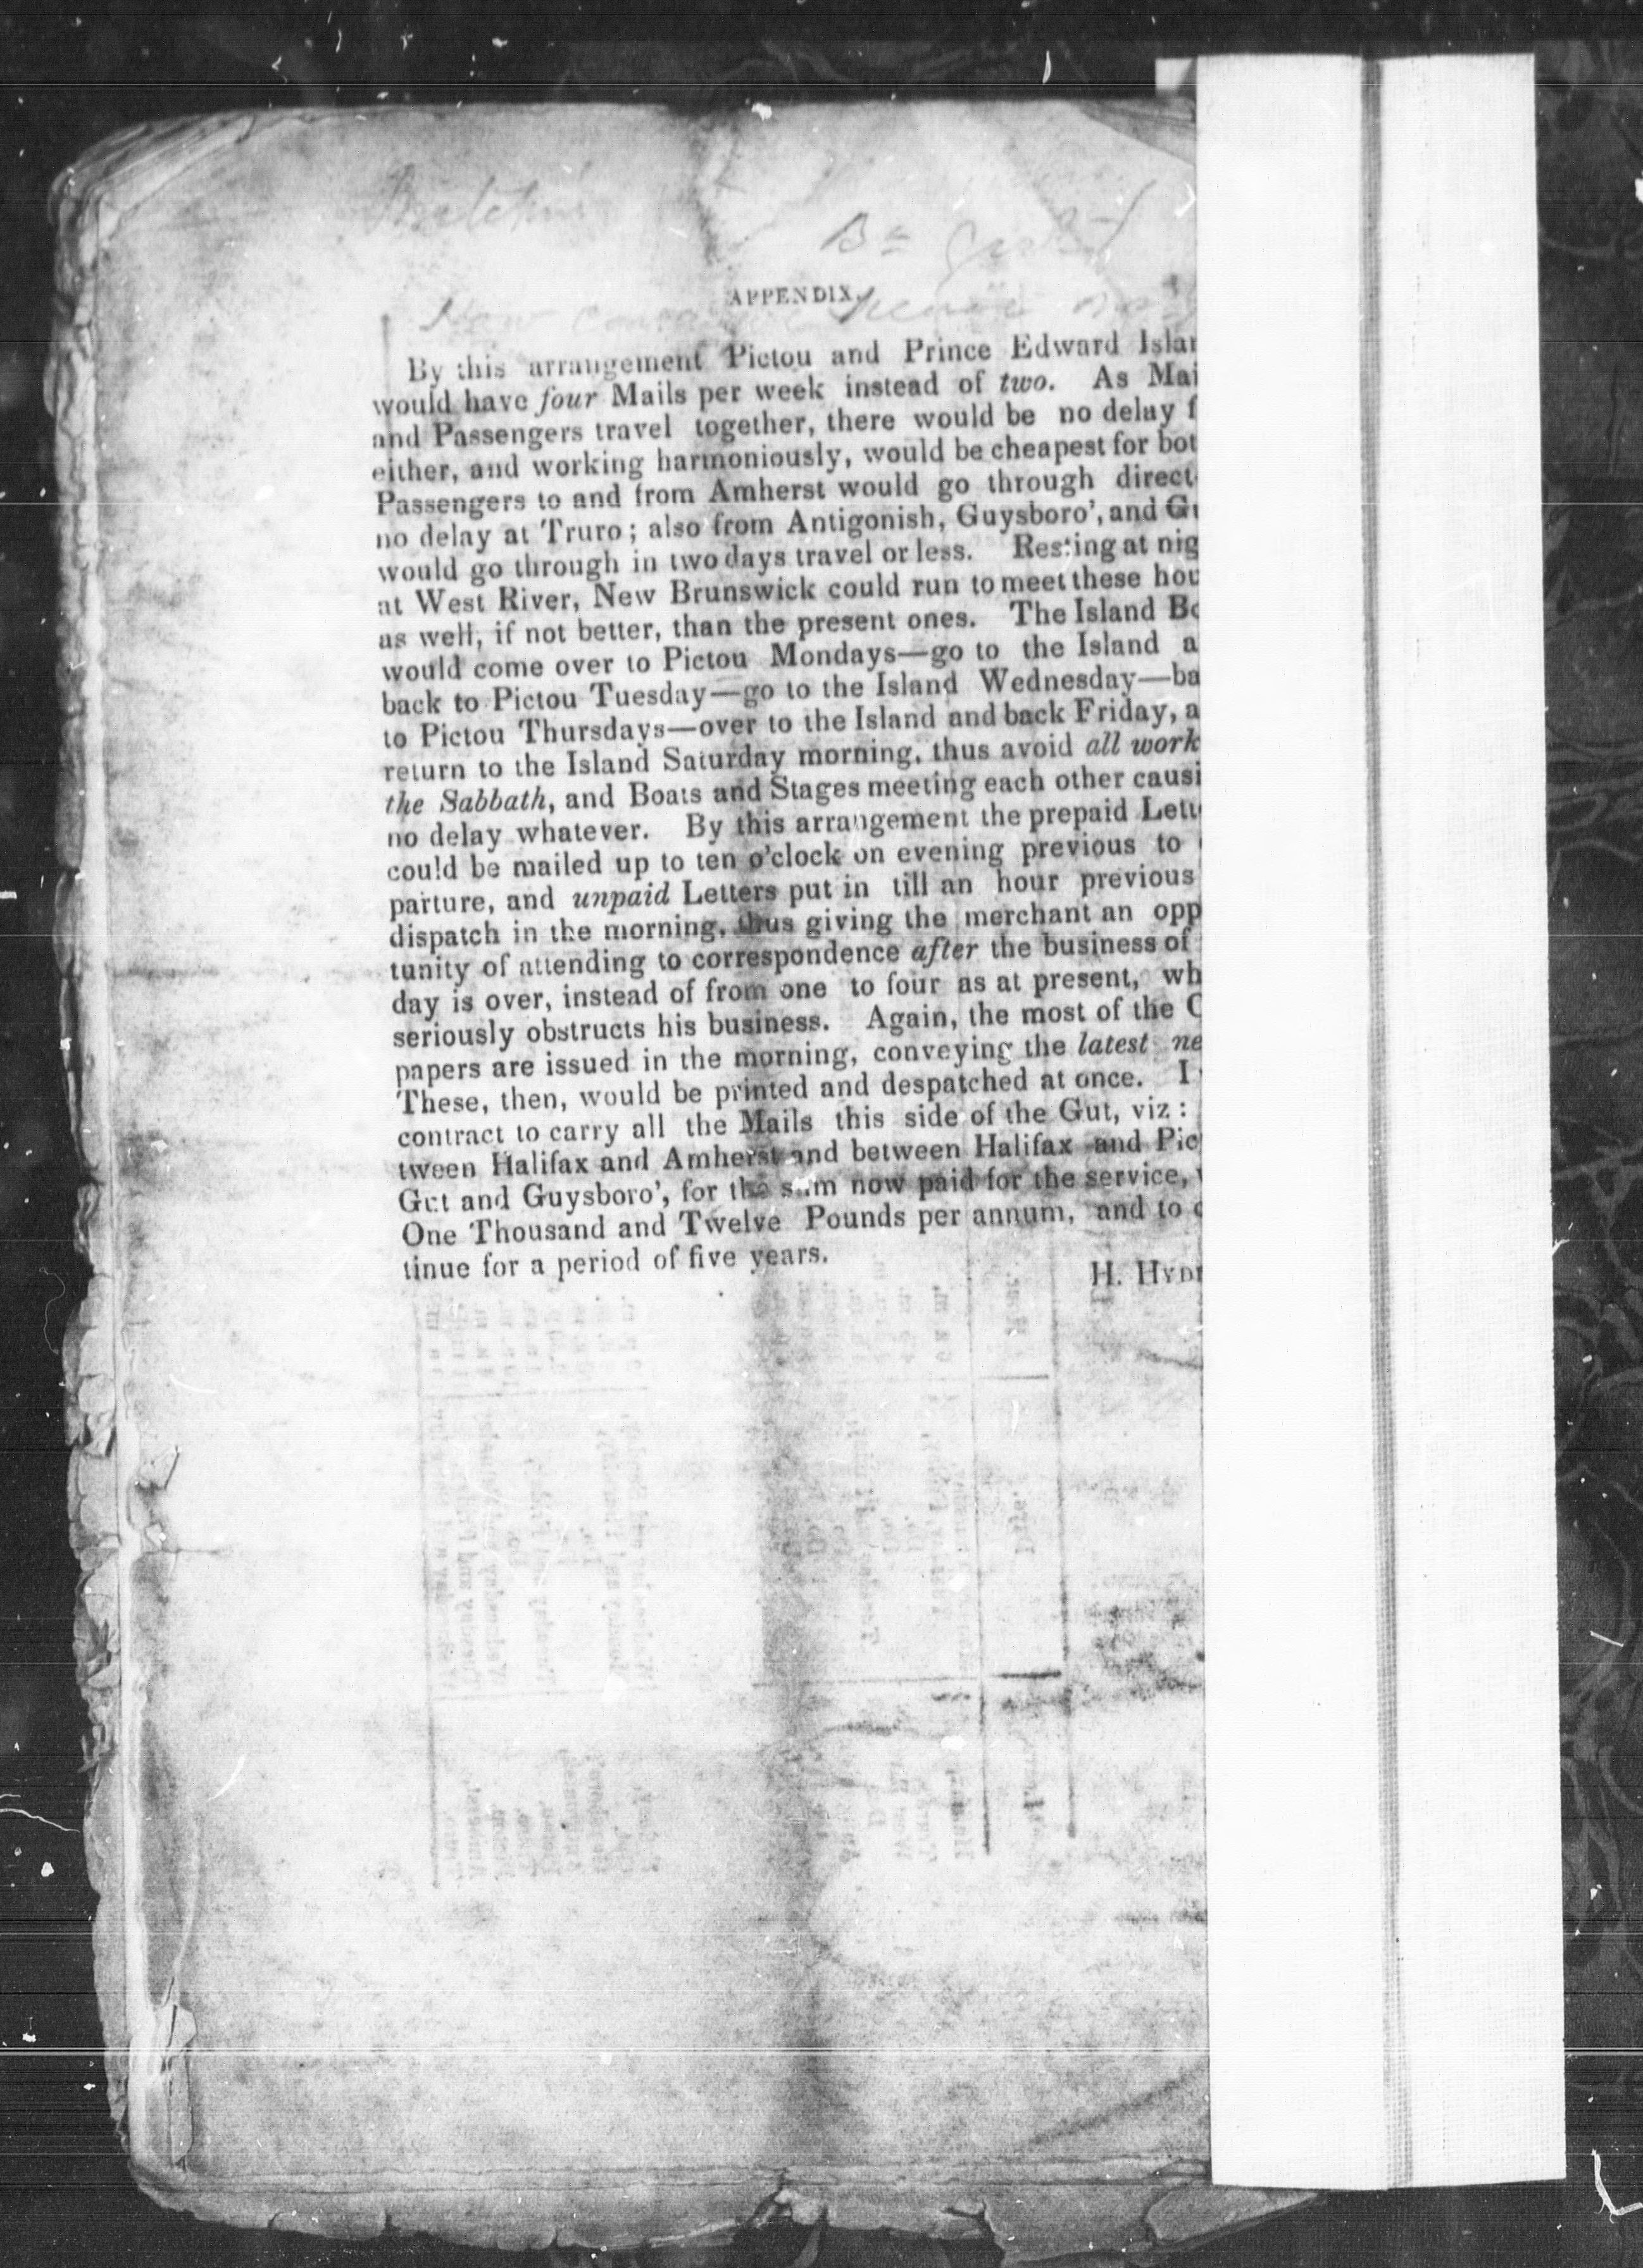 APPENDIX.
By this arrangement Pictou and Prince Edward Islan
would have four Mails per week instead of two. As Mai
and Passengers travel together, there would be no delay f
either, and working harmoniously, would be cheapest for bot
Passengers to and from Amherst would go through direct
no delay at Truro; also from Antigonish, Guysboro', and Gu
would go through in two days travel or less. Resting at nig
at West River, New Brunswick could run to meet these hou
as well, if not better, than the present ones. The Island Bo
would come over to Pictou Mondays—go to the Island a
back to Pictou Tuesday—go to the Island Wednesday—ba
to Pictou Thursdays—over to the Island and back Friday, a
return to the Island Saturday morning, thus avoid all work
the Sabbath, and Boats and Stages meeting each other causi
no delay whatever. By this arrangement the prepaid Lett
could be mailed up to ten o'clock on evening previous to
parture, and unpaid Letters put in till an hour previous
dispatch in the morning, thus giving the merchant an opp
tunity of attending to correspondence after the business of
day is over, instead of from one to four as at present, wh
seriously obstructs his business. Again, the most of the C
papers are issued in the morning, conveying the latest ne
These, then, would be printed and despatched at once. I
contract to carry all the Mails this side of the Gut, viz:
tween Halifax and Amherst and between Halifax and Pic
Gut and Guysboro', for the sum now paid for the service,
One Thousand and Twelve Pounds per annum, and to c
tinue for a period of five years.
H. HYD